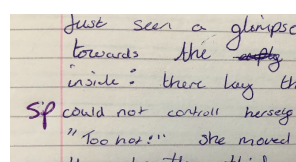 Just seen a glimpse
towards the empty
inside: there lay th
Sp could not controll herself
"Too hot!" she moved